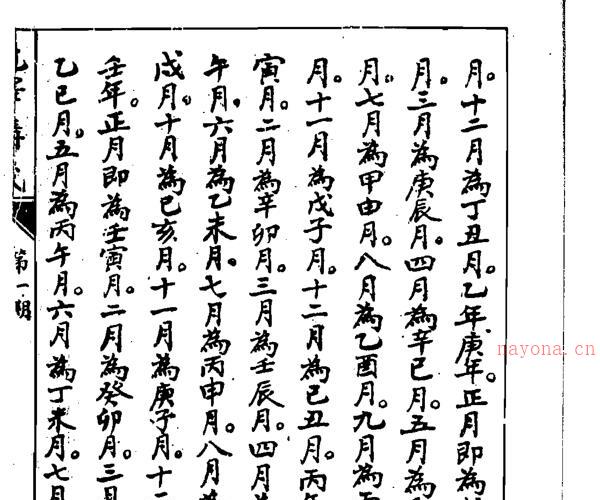 月。十二月為丁丑月。乙年庚年。正月即為
月。三月為庚辰月。四月為辛巳月。五月為
月。七月為甲申月。八月為乙酉月。九月為丙
月。十一月為戊子月。十二月為己丑月。丙年
寅月。二月為辛卯月。三月為壬辰月。四月為
午月。六月為乙未月。七月為丙申月。八月為
戌月。十月為己亥月。十一月為庚子月。十二
壬年。正月即為壬寅月。二月為癸卯月。三月
乙巳月。五月為丙午月。六月為丁未月。七月
第一期
nayona.cn